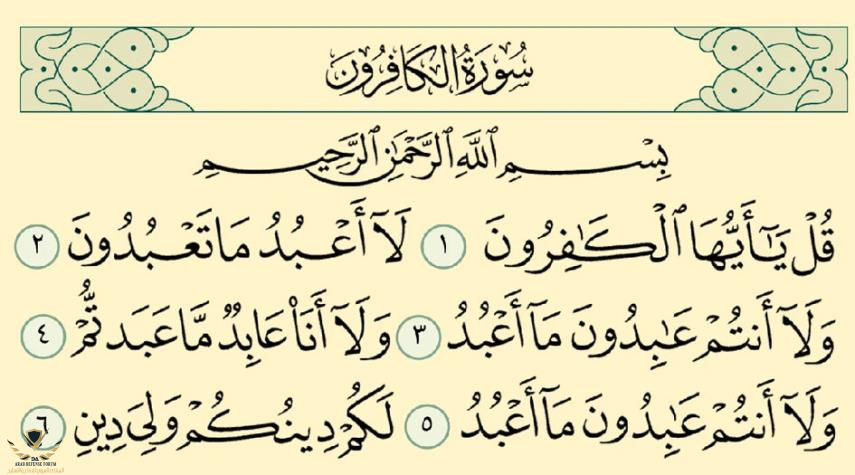 سُورَةُ الكَافِرُونَ
بِسْمِ ٱللَّهِ ٱلرَّحْمَٰنِ ٱلرَّحِيمِ
قُلْ يَٰٓأَيُّهَا ٱلْكَٰفِرُونَ ١ لَآ أَعْبُدُ مَا تَعْبُدُونَ ٢
وَلَآ أَنتُمْ عَٰبِدُونَ مَآ أَعْبُدُ ٣ وَلَآ أَنَا۠ عَابِدٌ مَّا عَبَدتُّمْ ٤
وَلَآ أَنتُمْ عَٰبِدُونَ مَآ أَعْبُدُ ٥ لَكُمْ دِينُكُمْ وَلِيَ دِينِ ٦
DA
ARAB DEFENSE FORUM